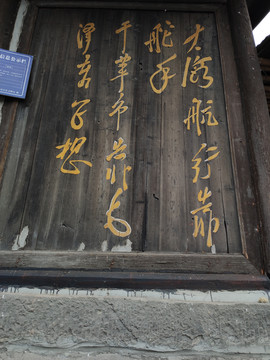 大海航行靠
舵手
干革命靠毛
泽东思想